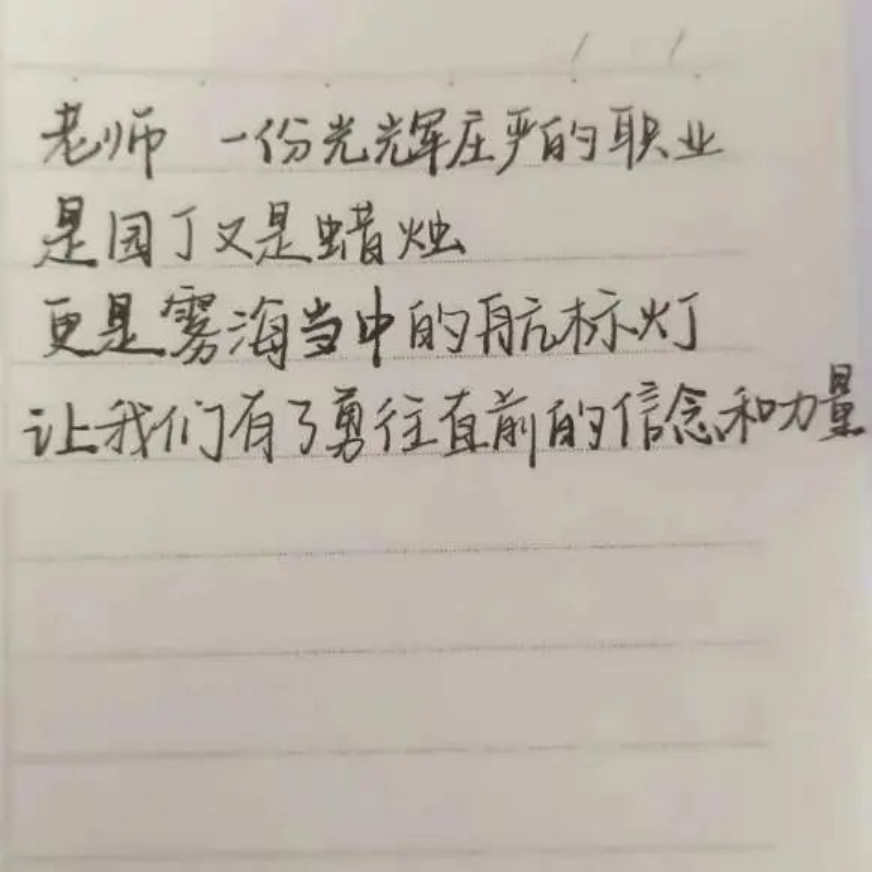 老师 一份光辉庄严的职业
是园丁又是蜡烛
更是雾海当中的航标灯
让我们有了勇往直前的信念和力量